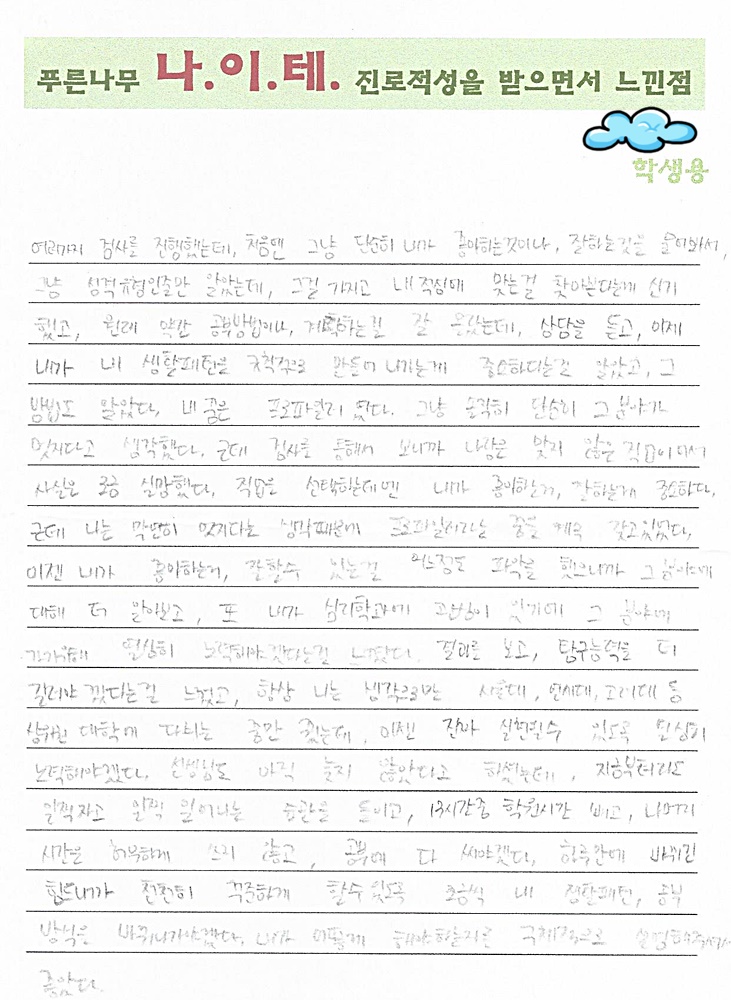 푸른나무 나.이.테. 진로적성을 받으면서 느낀점
학생용
여러가지 검사를 진행했는데, 처음엔 그냥 단순히 내가 좋아하는것이나, 잘하는것을 물어봐서,
그냥 성격유형인줄만 알았는데, 그걸 가지고 내적성에 맞는걸 찾아본다는게 신기
했고, 원래 약간 공부방법이나, 계획하는걸 잘 몰랐는데, 상담을 듣고, 이제
내가 내 생활패턴을 규칙적으로 만들어 나가는게 중요하다는걸 알았고, 그
방법도 알았다, 내 꿈은 프로파일러 였다. 그냥 솔직히 단순히 그 분야가
멋지다고 생각했다. 근데 검사를 통해서 보니까 나랑은 맞지 않은 직업이어서
사실은 조금 실망했다, 직업을 선택하는데엔 내가 좋아하는거, 잘하는게 중요하다,
근데 나는 막연히 멋지다는 생각때문에 프로파일러라는 꿈을 계속 갖고있었다,
이젠 내가 좋아하는거, 잘할수 있는걸 어느정도 파악을 했으니까 그 분야에
대해 더 알아보고, 또 내가 심리학과에 관심이 있기에 그 분야에
열심히 노력해야겠다는걸 느꼈다. 결과를 보고, 탐구능력을 더
길러야 겠다는걸 느꼈고, 항상 나는 생각으로만 서울대, 연세대, 고려대 등
상위권 대학에 다니는 꿈만 꿨는데, 이젠 진짜 실현될수 있도록 열심히
노력해야겠다. 선생님도 아직 늦지 않았다고 하셨는데, 지금부터라도
일찍자고 일찍 일어나는 습관을 들이고, 13시간중 학원시간 빼고, 나머지
시간은 허무하게 쓰지 않고, 공부에 다 써야겠다, 하루만에 바뀌긴
힘드니까 천천히 꾸준하게 할수있도록 조금씩 내 생활패턴, 공부
방식을 바꿔나가야겠다. 내가 어떻게 해야하는지를 구체적으로 설명해주셔서
좋았다.